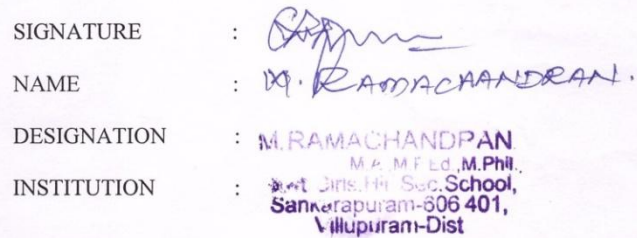 SIGNATURE :
NAME : M. RAMACHANDRAN.
DESIGNATION : M.RAMACHANDPAN
M.A. M.P.Ed.,M.Phil.,
INSTITUTION : Girls.Hr. Sec.School,
Sankarapuram-606 401,
Villupuram-Dist